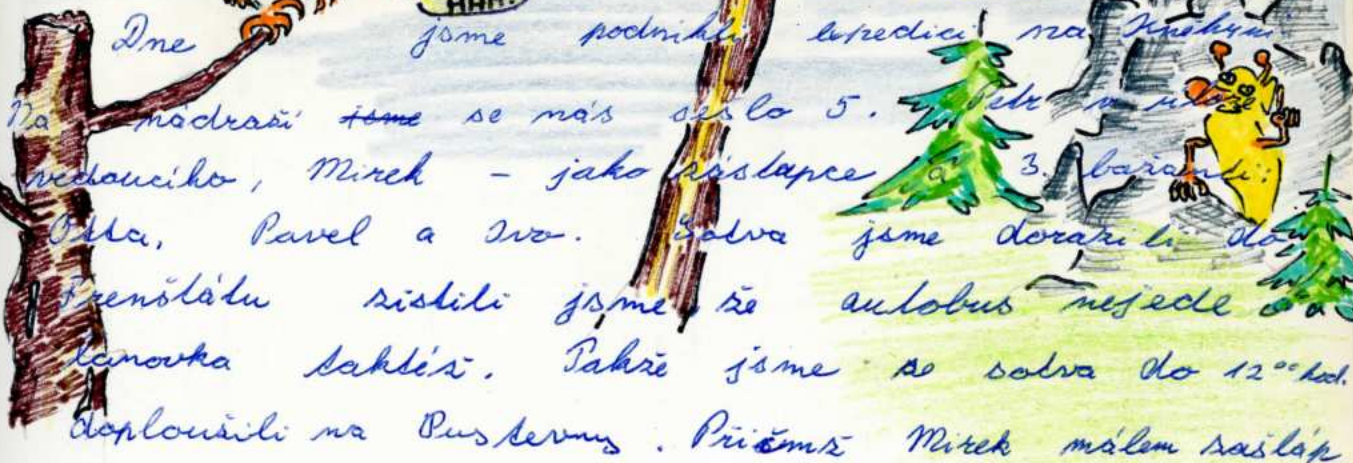 HAH!
Dne jsme podnikli expedici na Kněhyni
Na nádraží jsme se nás sešlo 5. Petr v roli
vedoucího, Mirek - jako zástupce a 3. bažanti:
Otta, Pavel a Ivo. Sotva jsme dorazili do
Frenštátu zistili jsme, že autobus nejede a
lanovka taktéž. Takže jsme se sotva do 12°° hod.
doploužili na Pustevny. Přičemž Mirek málem zašláp